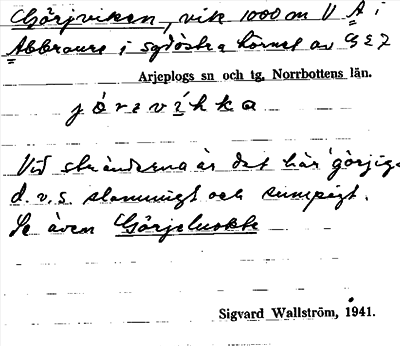 Görjviken, vik 1000 m V A i
Abbraure i sydöstra hörnet av GEZ
Arjeplogs sn och tg, Norrbottens län.
Vid stränderna är det här "görjig",
d.v.s. slammigt och sumpigt.
Se även Görjeluokte
Sigvard Wallström, 1941.